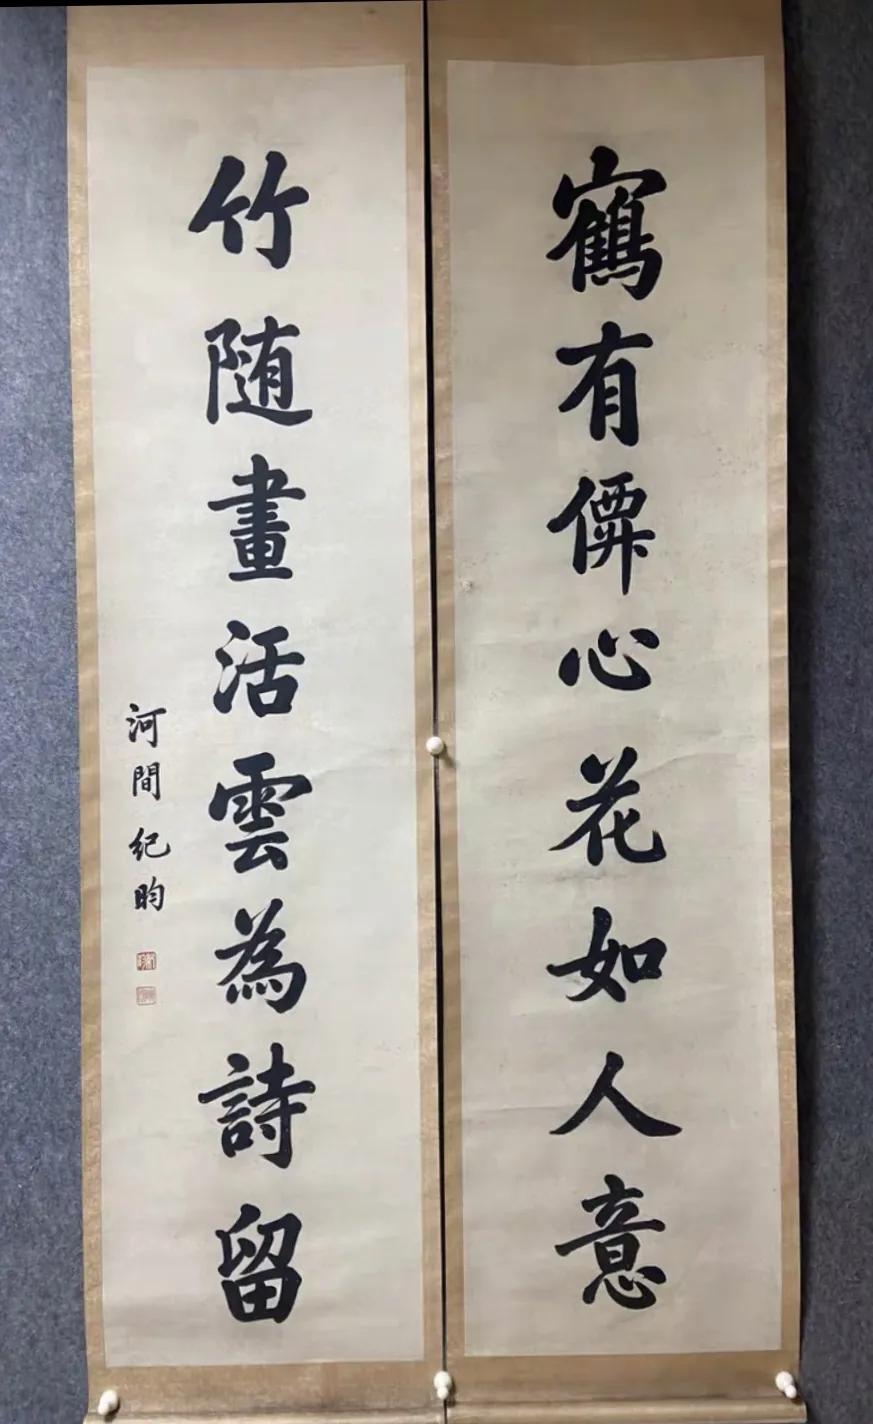 鶴有僊心花如人意
竹随畫活雲為詩留
河間紀昀